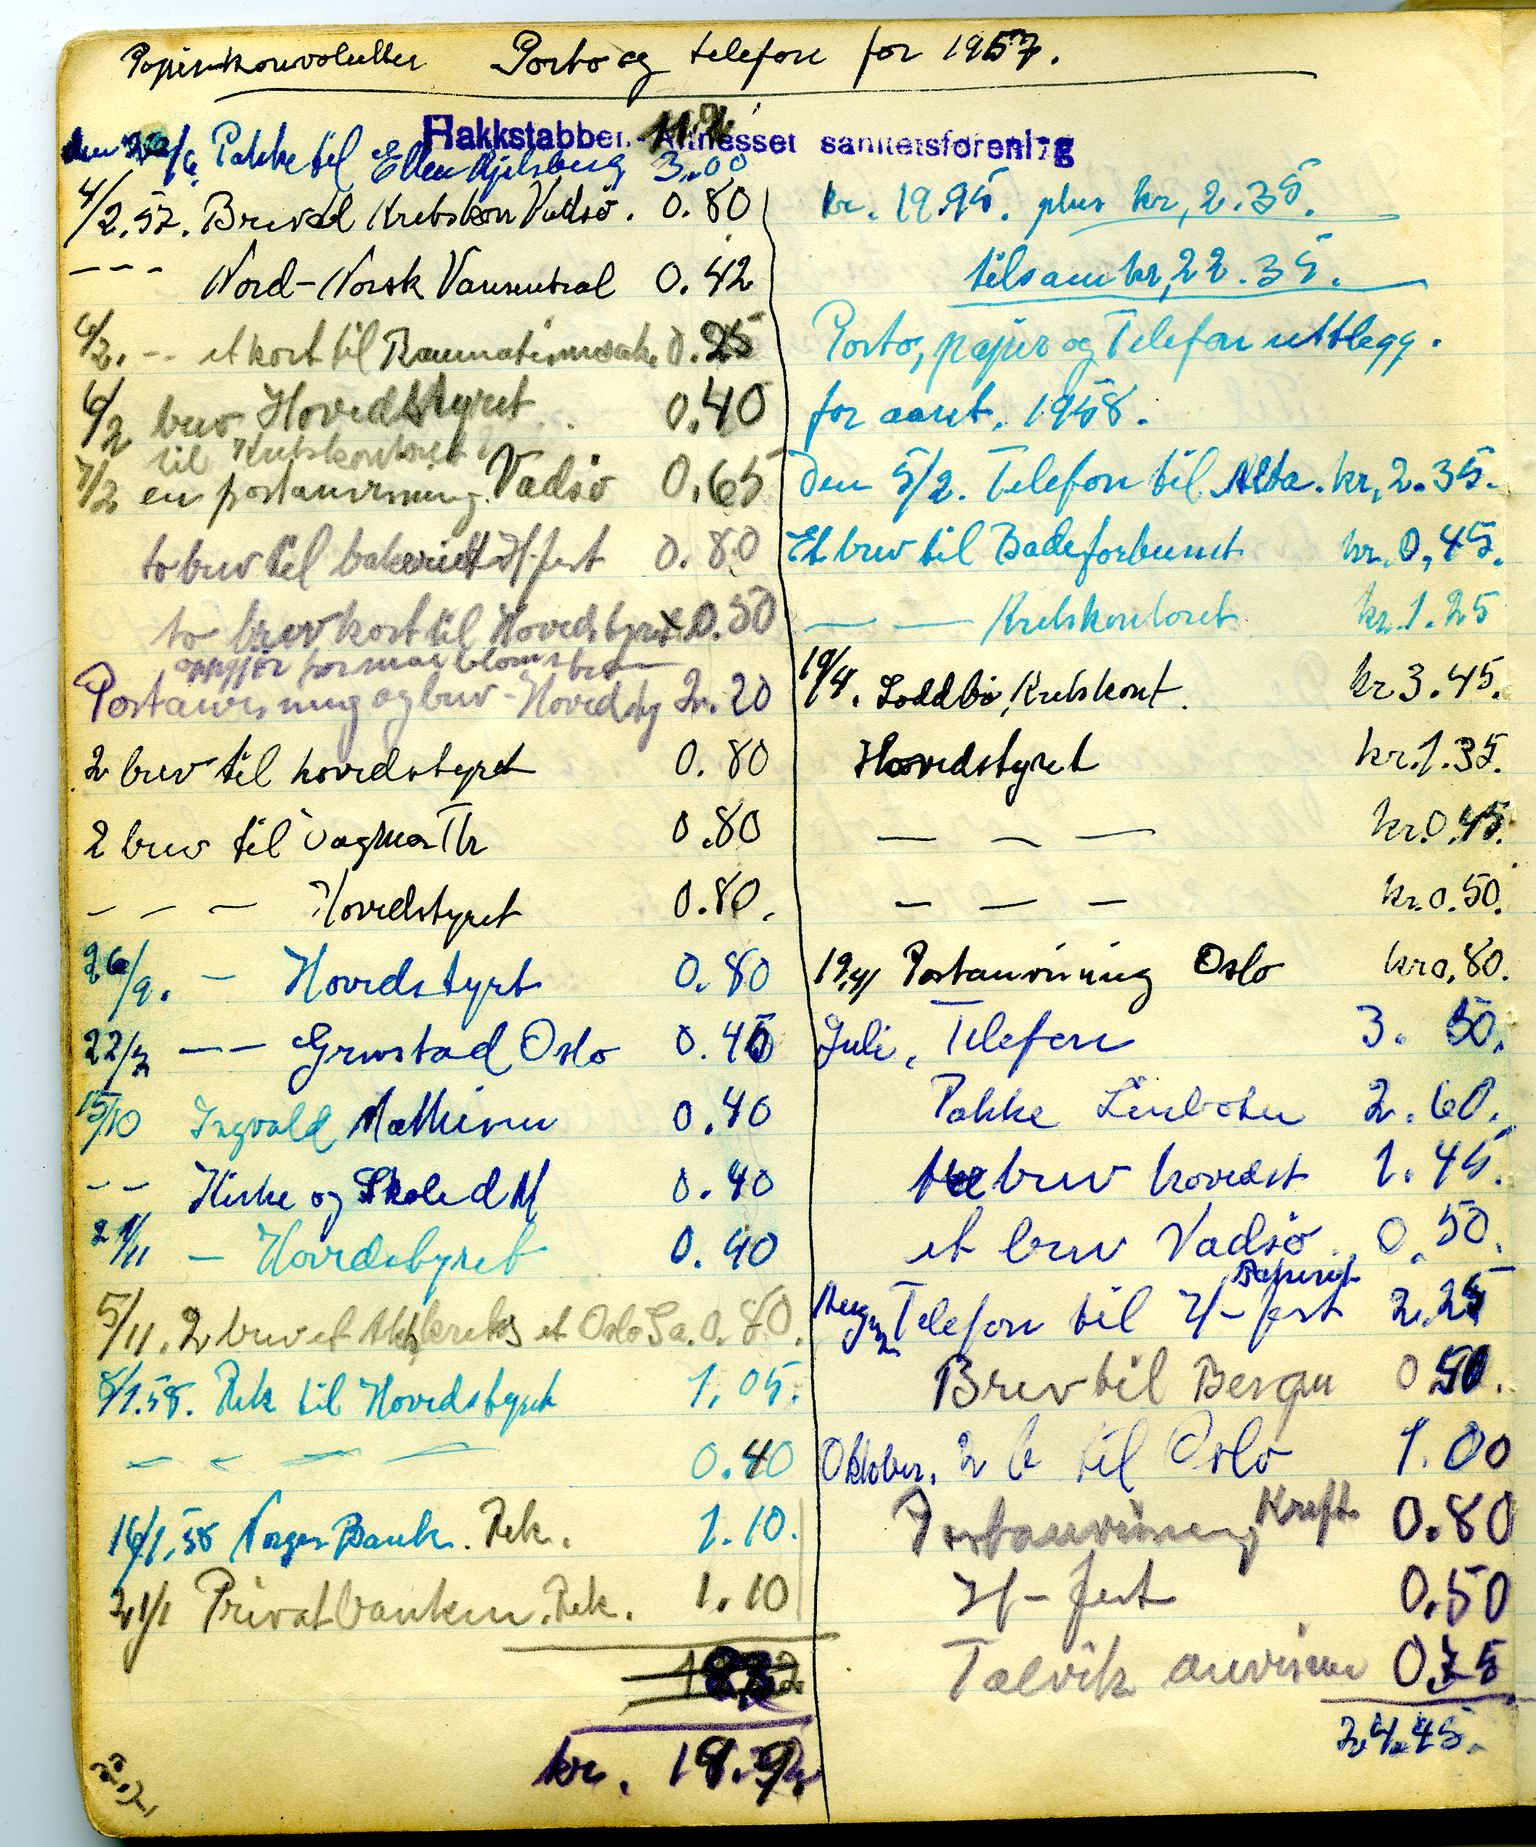 Papir konvolutter Porto og telefon for 1957.
Hakkstabben - Altnesset sanitetsforening
Pakke til Ellen Kjelsberg 3.00
4/2.57. Brev til Kretskon Vadsö. 0.80
--- Nord-Norsk 0.42
6/2. -- et kort til 0.25
6/2 brev Hovedstyret 0.40
til Kretskontoret
7/2 en postanvisning. Vadsö 0.65
to brev til bakeriet H-fest 0.80
to brevkort til Hovedstyret 0.50
oppgjör for maiblomsten
Postanvisning og brev - Hovedsty 2.20
2 brev til hovedstyret 0.80
2 brev til Dagmar Th 0.80
- - - Hovedstyret 0.80.
26/9. - Hovedstyret 0.80
22/3 -- Oslo 0.45
15/10 Ingvald Mathisen 0.40
-- Kirke og Skoled M 0.40
21/11 - Hovedstyret 0.40
5/11. 2 brev et Oslo Sa. 0.80.
8/1.58. Rek til Hovedstyret 1,05.
- - - - 0.40
16/1,58 Norges Bank. Rek. 1.10.
21/1 Privatbanken. Rek. 1.10
kr.
kr. 19.95. plus kr, 2.35.
tilsam kr, 22.35.
Porto, papir og Telefon uttlegg.
for aaret. 1958.
Den 5/2. Telefon til Alta. kr, 2.35.
Et brev til Badeforbundet kr. 0,45.
— — Kretskontoret kr. 1.25
19/4. Loddbö, Kretskont. kr 3.45.
Hovedstyret kr. 1.35.
— — — kr. 0.45.
— — — kr. 0.50.
19/4 Postanvisning Oslo kr 0,80.
Juli, Telefon 3. 50.
Pakke 2.60.
brev hovedst 1.45.
et brev Vadsö 0.50.
Telefon til H-fest 2.25
Brev til Bergen 0.50.
Oktober, 2 b til Oslo 1.00
Postanvisning Kreft 0.80
H-fest 0.50
Talvik anvisn 0.75
24.45.